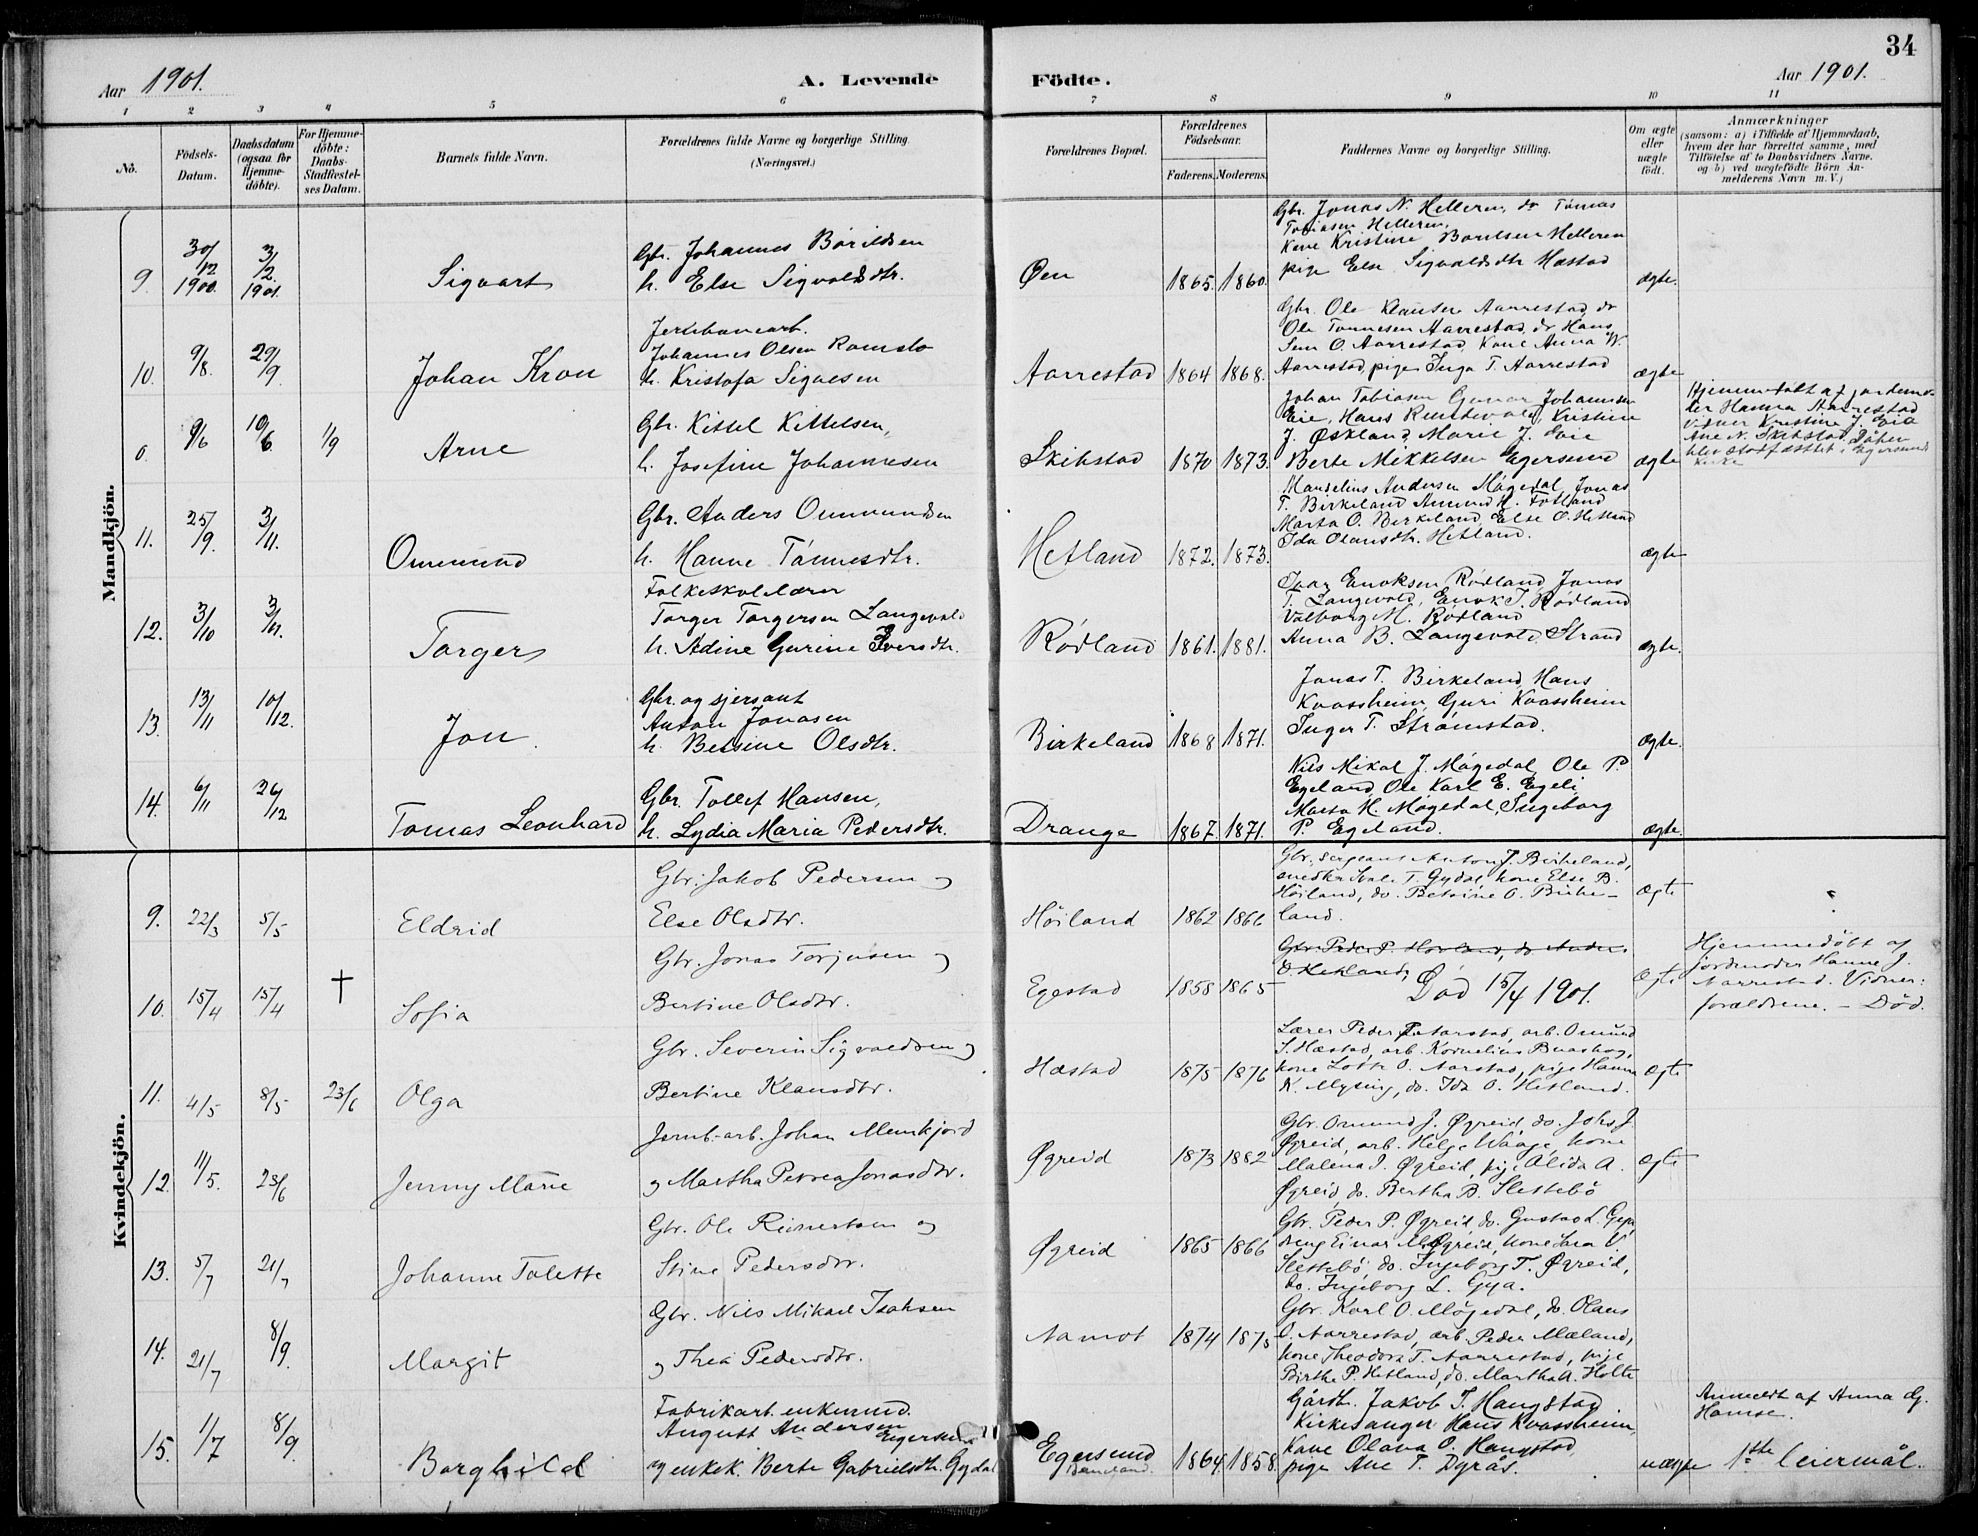 34
Aar 1901.
A. Levende Födte.
Aar 1901.
1 2 3 4 5 6 7 8 9 10 11
No.
Födsels-Datum.
Daabsdatum (ogsaa for Hjemme-döbte).
For Hjemme-döbte: Daabs-Stadfæstel-ses Datum.
Barnets fulde Navn.
Forældrenes fulde Navne og borgerlige Stilling (Næringsvei.)
Forældrenes Bopæl.
Forældrenes Födselsaar.
Faderens. Moderens.
Faddernes Navne og borgerlige Stilling.
Om ægte eller uægte födt.
Anmærkninger
(saasom: a) i Tilfælde af Hjemmedaab,
hvem der har forrettet samme, med
Tilföielse af to Daabsvidners Navne,
og b) ved uægtefödte Börn An-
melderens Navn m. V.)
Mandkjön.
9. 30/12 1900. 3/2. 1901. Sigvart
Gbr. Johannes Bórildsen
h. Else Sigvaldsdtr.
Øen 1865. 1860.
Gbr. Jonas N. Helleren, do Tómas
Tobiasen Helleren,
Kone Kristine Helleren
pige Else Sigvaldsdtr. Hæstad
ægte.
10. 9/8. 29/9. Johan Kron
Jernbanearb.
Johannes Olsen Romslo
h. Kristofa Signesen
Aarrestad 1864 1868.
Gbr. Ole Klausen Aarrestad, do
Ole Tonnesen Aarrestad, do Hans
Sem O. Aarrestad, Kone Anna W.
Aarrestad, pige Inga T. Aarrestad
ægte
0. 9/6 10/6. 1/9 Arne
Gbr. Kittel Kittelsen,
h. Josefine Johannesen
Skibstad 1870 1873.
Johan Tobiasen Johannsen
Eie, Hans Kristine
J. Øskland, Marie J. Eie
Berte Mikkelsen Egersund
ægte
Hjemmedøbt af jordemo-
der Hanna Aarrestad
Vidner Kristine J. Eie
Ane N. Skibstad. Dåben
blev stadfæstet i Egersund
Kirke
11. 25/9. 3/11. Ommund
Gbr. Anders Ommundsen
h. Hanne Tónnesdtr.
Hetland 1872. 1873.
Mauselius Andersen Mógedal, Jonas
T. Birkeland, Amund H. Fotland
Marta O. Birkeland, Else O. Hetland
Ida Olausdtr. Hetland.
ægte
12. 3/10 3/11. Torger
Folkeskolelærer
Torger Torgersen Langevald
h. Adine Gurine Iversdtr.
Rødland 1861. 1881.
Ivar Enoksen Rødland, Jonas
T. Langevold, Enok I. Rødland
Valborg M. Rødland
Anna B. Langevold, Strand
ægte.
13. 13/11 10/12. Jon.
Gbr. og sjersant
Anton Jonasen
h. Betsine Olsdtr.
Birkeland 1868 1871.
Jonas T. Birkeland, Hans
Kvassheim, Guri Kvassheim
Inger T. Strómstad.
ægte.
14. 6/11 26/12 Tomas Leonhard
Gbr. Tollef Hansen,
h. Lydia Maria Pedersdtr.
Drange 1867. 1871.
Nils Mikal J. Mógedal, Ole P.
Egeland, Ole Karl E. Egeli,
Marta M. Mógedal, Ingeborg
P. Egeland.
ægte.
Kvindekjön.
9. 22/3 5/5 Eldrid
Gbr. Jakob Pedersen og
Else Olsdtr.
Höiland 1862 1866
Gbr. sergeant Anton J. Birkeland,
snedker T. Gydal, kone Else B.
Höiland, do. Betsine O. Birke-
land.
ægte
10. 15/4 15/4 † Sofia
Gbr. Jonas Torjusen og
Bertine Olsdtr.
Egestad 1858 1865
Gbr. Peder P. Hovland, do Anders
O. Hetland,
Død 15/4 1901.
ægte
Hjemmedöbt af
jordmoder Hanne J.
Aarrestad. Vidner:
forældrene. – Död.
11. 4/5 8/5 23/6 Olga
Gbr. Severin Sigvaldsen og
Bertine Klausdtr.
Hæstad 1875 1876
Lærer Peder P. Aarstad, arb. Omund
S. Hæstad, arb. Kornelius Buaskog,
kone Lotte O. Aarstad, pige Hanna
K. Mysing, do. Ida O. Hetland.
ægte
12. 11/5. 23/6 Jenny Marie
Jernb.-arb. Johan Memkjord
og Martha Petrea Jonasdtr.
Øgreid 1873 1882
Gbr. Omund J. Øgreid, do. Johs J.
Øgreid, arb. Helge Waage, kone
Malena J. Øgreid, pige Alida A.
Øgreid, do. Bertha B. Slettebö
ægte
13. 5/7 21/7 Johanne Talette
Gbr. Ole Reinertsen og
Stine Pedersdtr.
Øgreid 1865 1866
Gbr. Peder P. Øgreid, do. Gustav L. Gya,
dreng Einar M. Øgreid, kone Sara V
Slettebö, do. Ingeborg T. Øgreid,
do. Ingeborg L. Gya.
14. 21/7 8/9. Margit
Gbr. Nils Mikael Isaksen
og Thea Pedersdtr.
Aamot 1874 1875
Gbr. Karl O. Mögedal, do. Olaus
O. Aarrestad, arb. Peder Mæland,
kone Theodora T. Aarrestad, pige
Birthe P. Hetland, do. Martha A. Holte
15. 1/7 8/9 Borghild
Fabrikarb. enkemnd.
August Andersen Egersund
og enkek. Berte Gabrielsdtr. Gydal
Egersund 1864. 1858.
Gårdbr. Jakob T. Haugstad
Kirkesanger Hans Kvassheim,
Kone Olava O. Haugstad
pige Ane T. Dyrås.
uægte
Anmeldt af Anna G.
Hamse.
1ste leiermål.